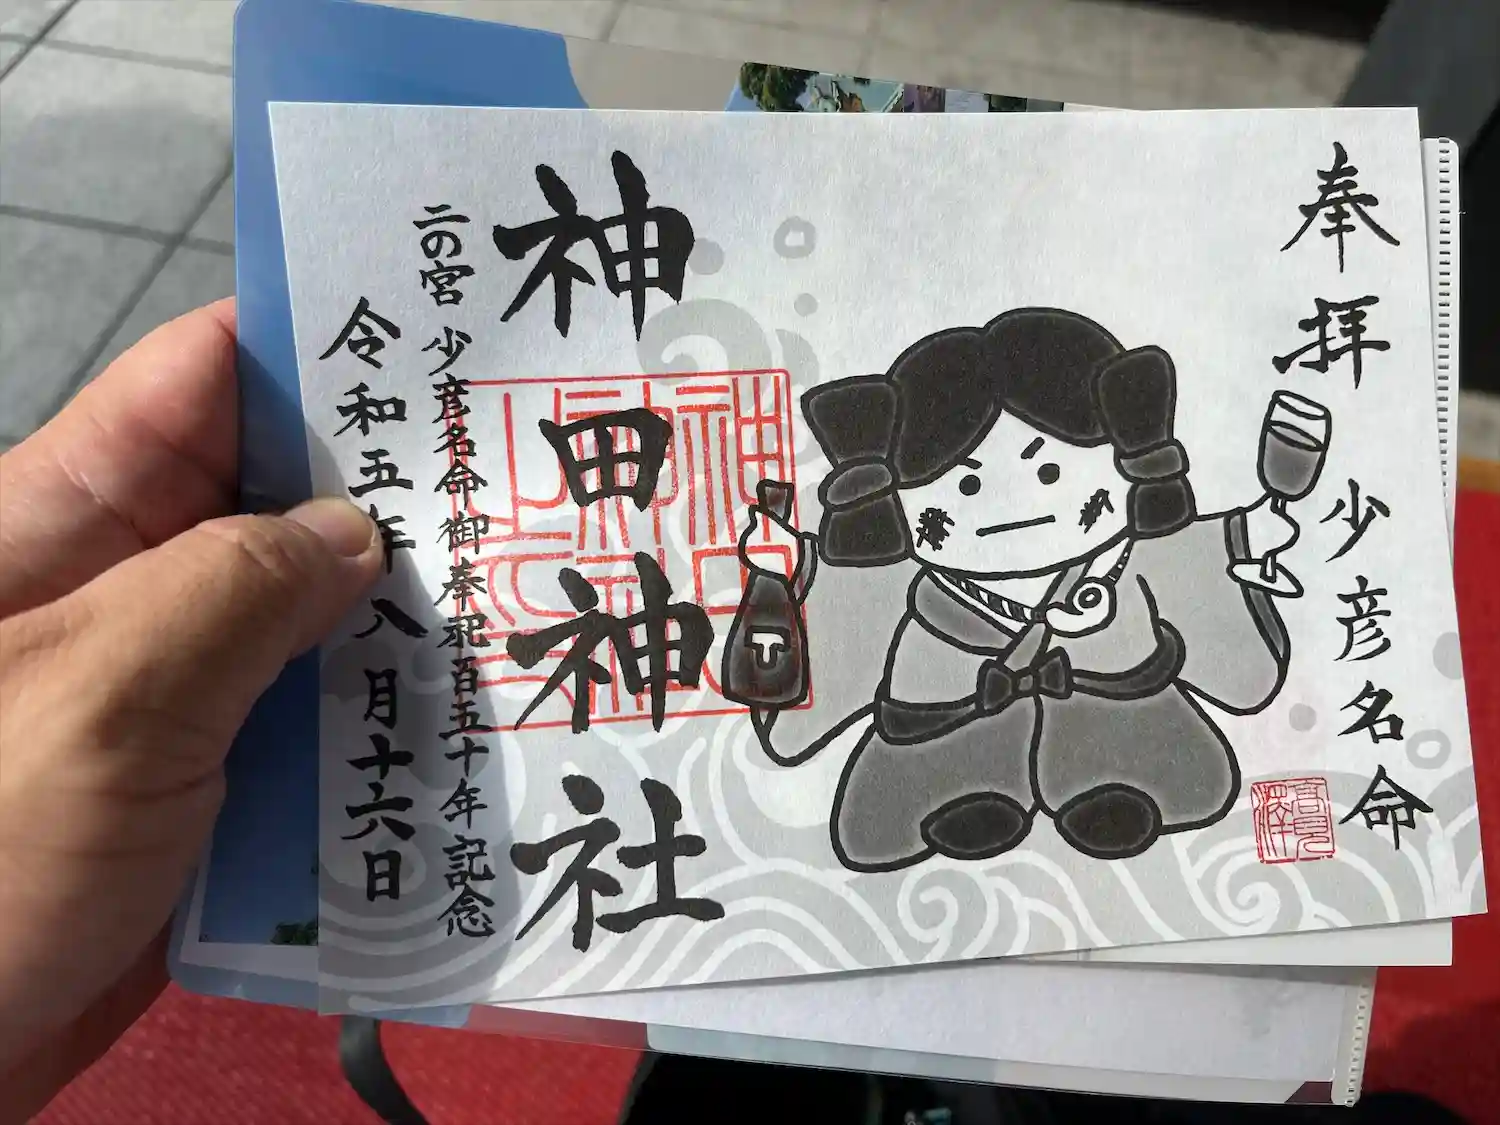 奉拝
少彦名命
神田神社
二の宮 少彦名命御奉祀百五十年記念
令和五年八月十六日